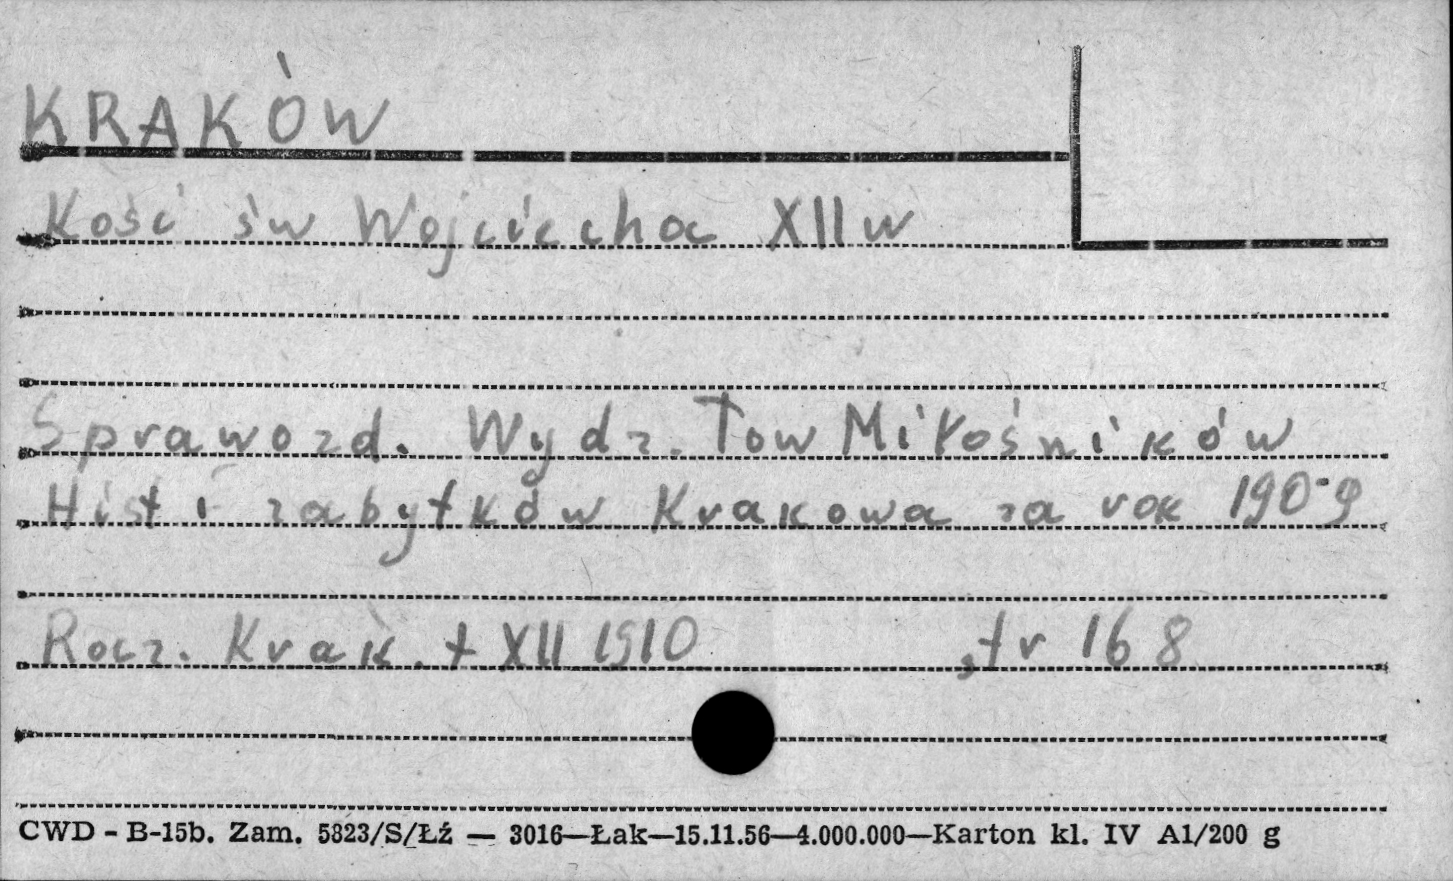 KRAKÓW
Kość św Wojciecha XII w
Sprawozd. Wydz. Tow Miłośników
Hist i zabytków Krakowa za rok 1909
Rocz. Krak. t XII 1910 str 168
CWD - B-15b. Zam. 5823/S/Łź — 3016—Łak—15.11.56—4.000.000—Karton kl. IV A1/200 g